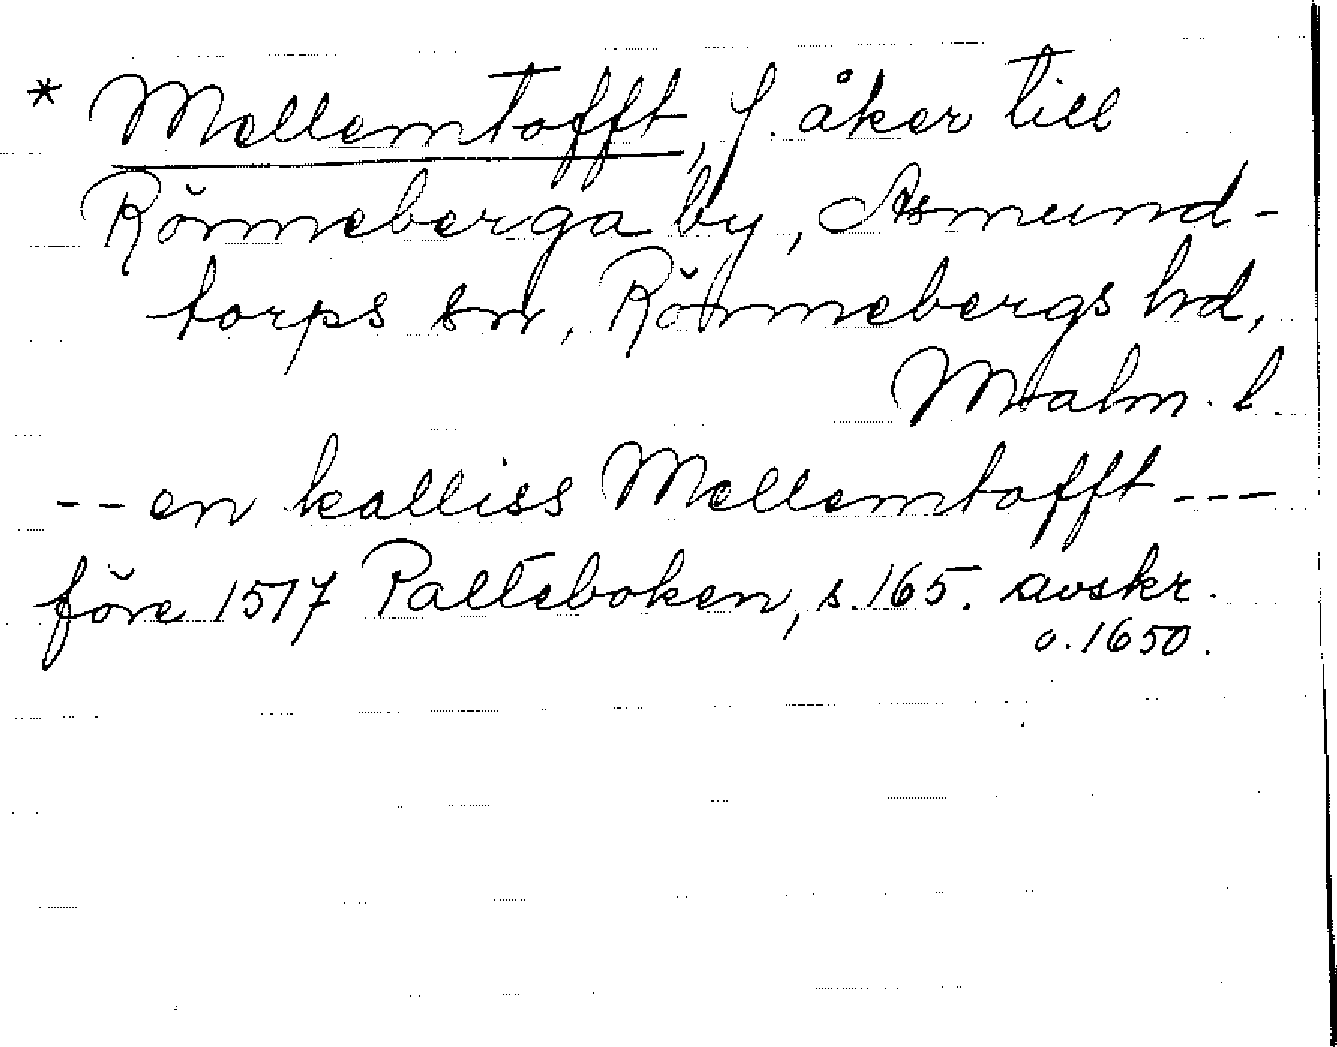 * Mellemtofft, f. åker till
Rönneberga by, Asmund-
torps sn, Rönnebergs hd,
Malm. l.
-- en kalliss Mellemtofft ---
före 1517 Palteboken, s. 165. avskr.
o. 1650.